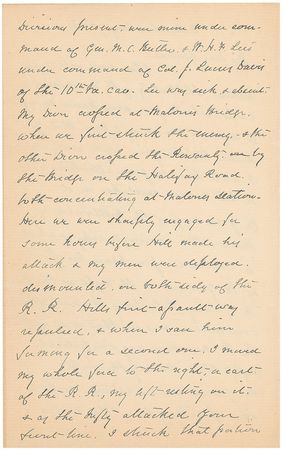 Divisions present - were mine under com-
mand of Gen. M. C. Butler. & W. H. F. Lee's
under command of Col. J. Lucius Davis
of the 10th Va. Cav. Lee was sick & absent.
My Divn crossed at Malones Bridge.
when we first struck the enemy - & the
other Divn crossed the Rowanty: on by
the Bridge on the Halifax Road.
both concentrating at Malones Station.
Here we were sharply engaged for
some hours before Hill made his
attack & my men were deployed.
dismounted, on both sides of the
R. R. Hills first assault was
repulsed, & when I saw him
forming for a second one. I moved
my whole force to the right, a east
of the R. R, my left resting on it.
& as the Infty attacked your
front line. I struck that portion